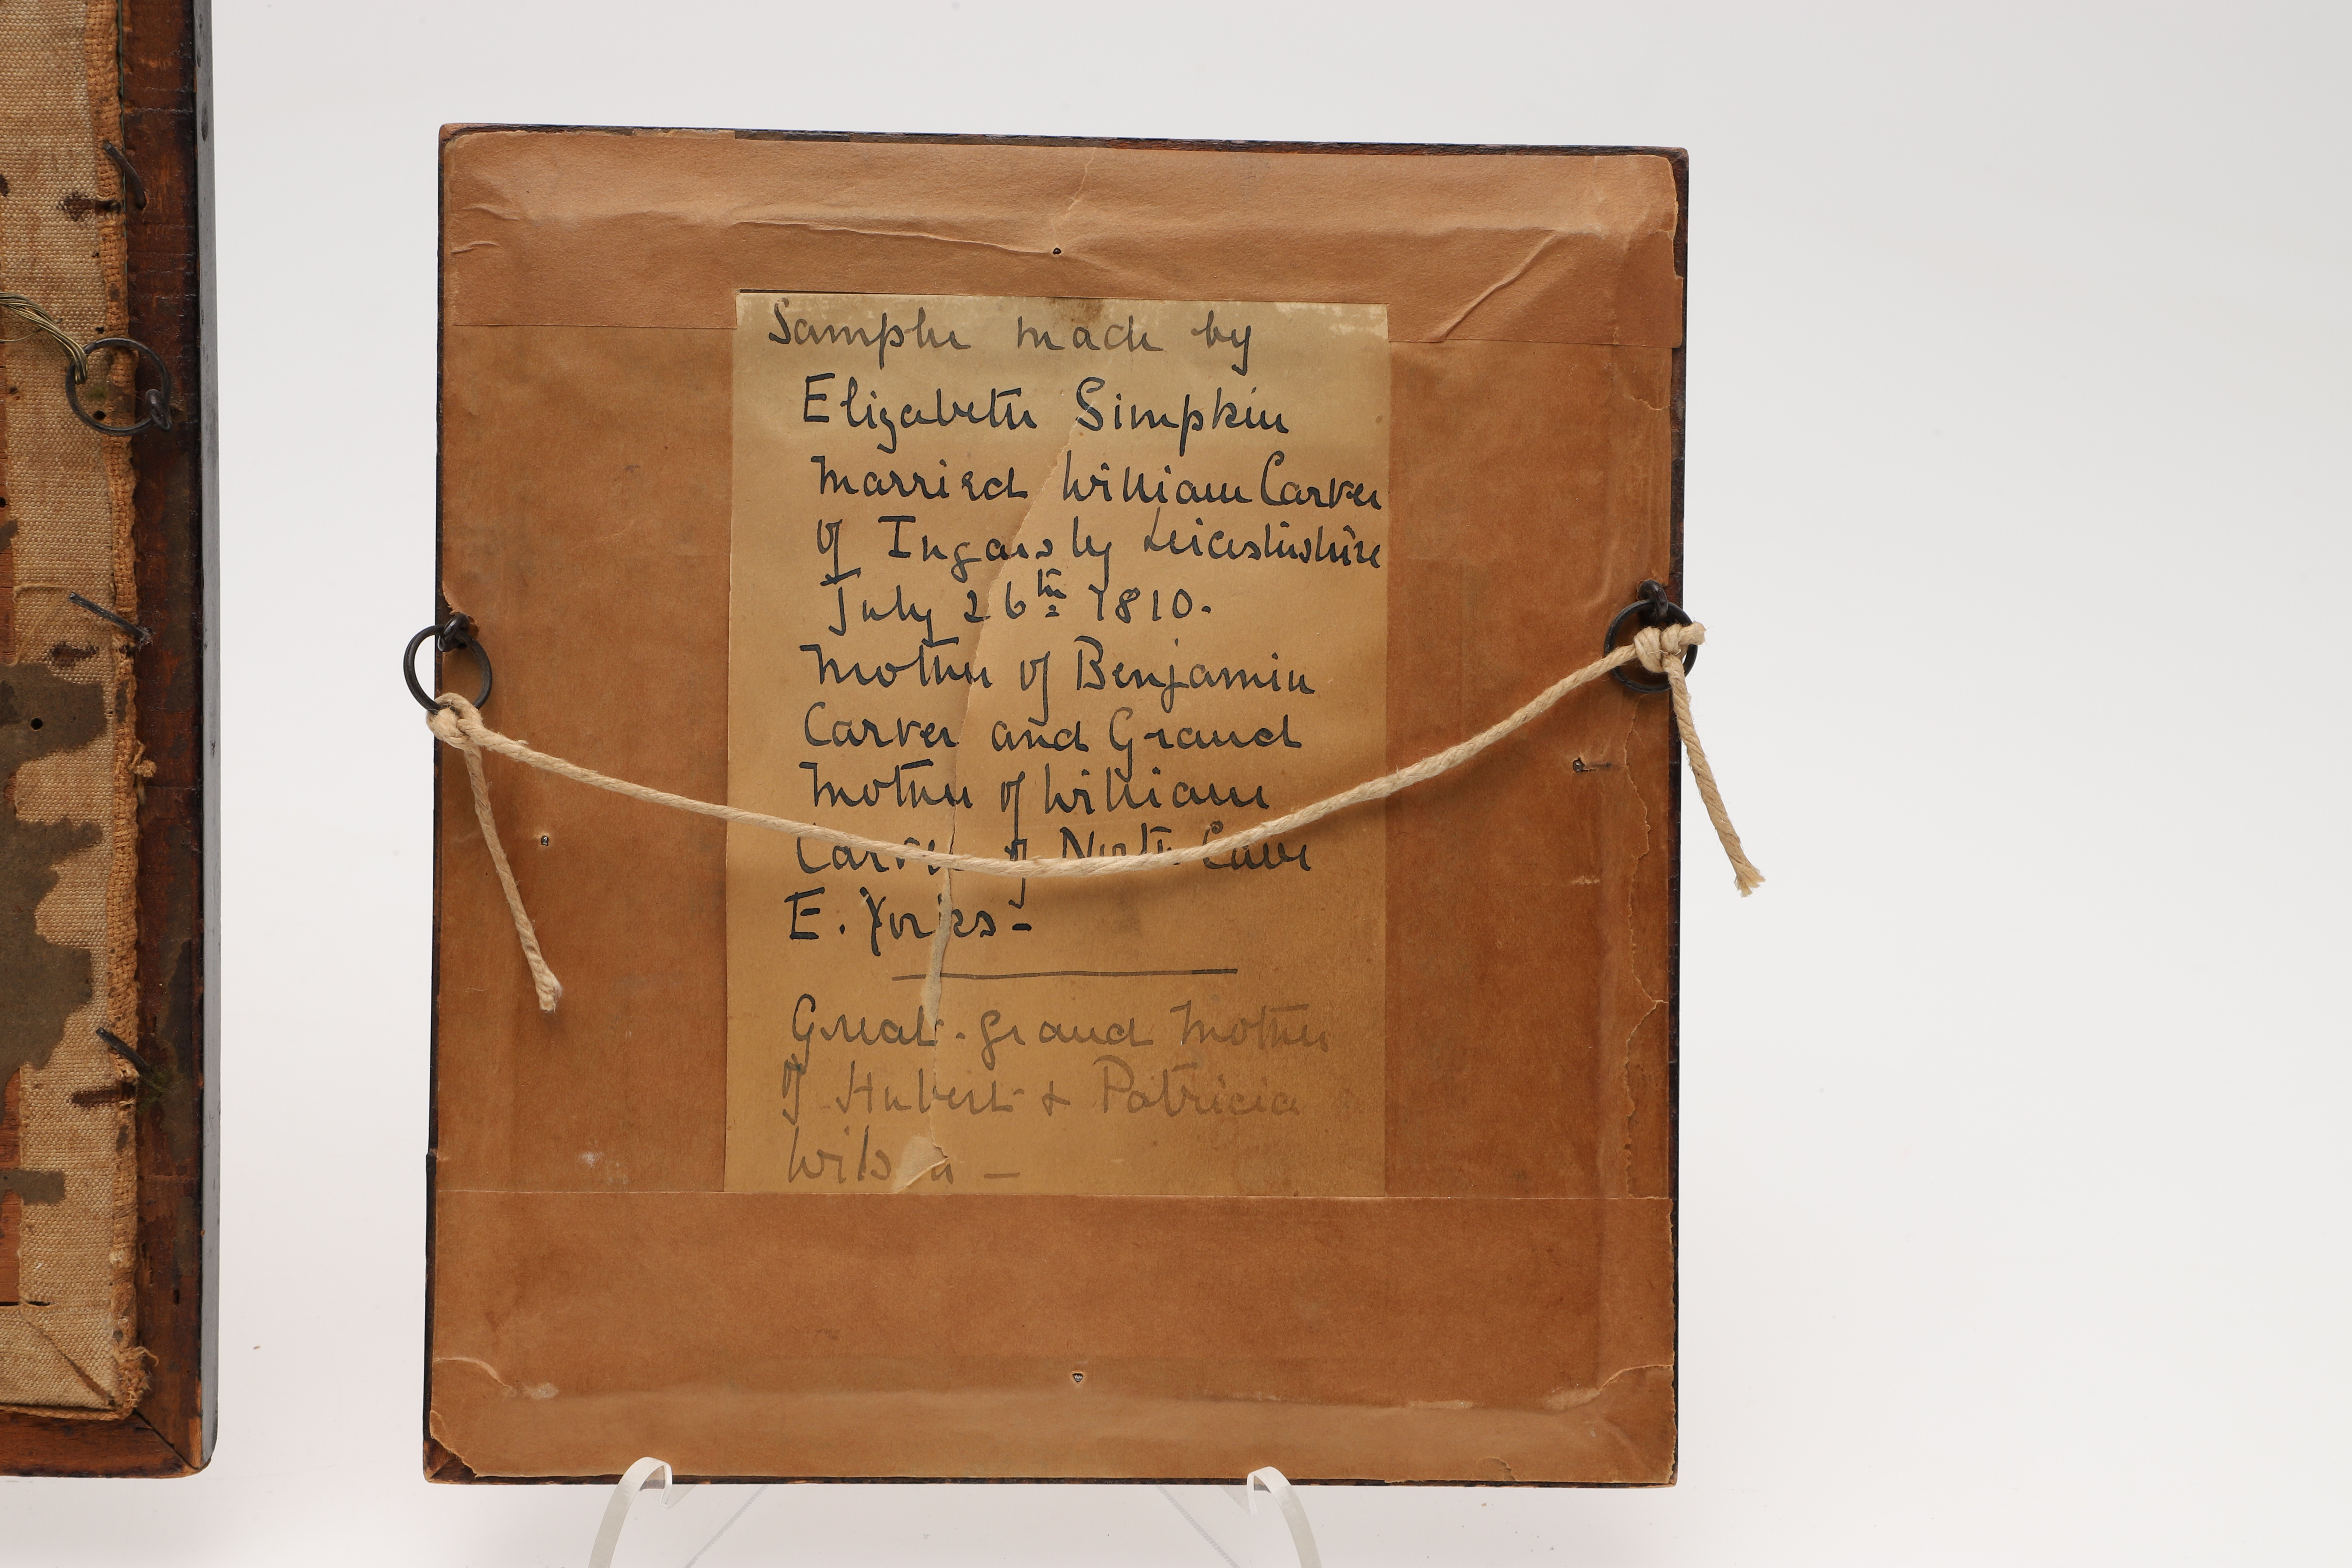 Sampler made by
Elizabeth Simpkin
Married William Carver
of Ingarsby Leicestershire
July 26th 1810.
Mother of Benjamin
Carver and Grand
Mother of William
Carver of North Cave
E. Yorks -
Great-grand Mother
of Hubert & Patricia
Wilson -